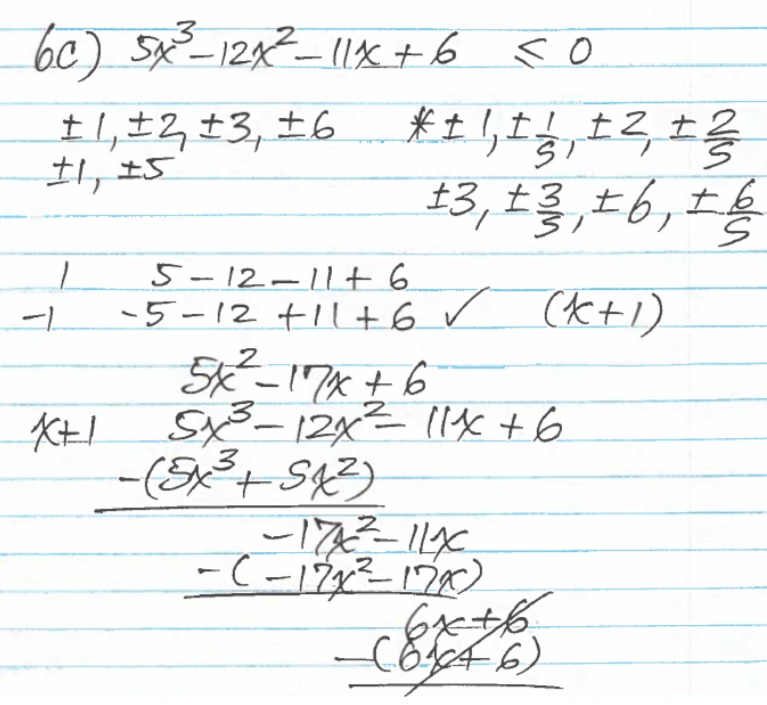 6c) 5x³-12x²-11x+6 ≤ 0
±1, ±2, ±3, ±6 *±1, ±1/5, ±2, ±2/5
±1, ±5
±3, ±3/5, ±6, ±6/5
1 5-12-11+6
-1 -5-12+11+6 ✓ (x+1)
5x²-17x+6
x+1 5x³-12x²-11x+6
-(5x³+5x²)
-17x²-11x
-(-17x²-17x)
6x+6
-(6x+6)